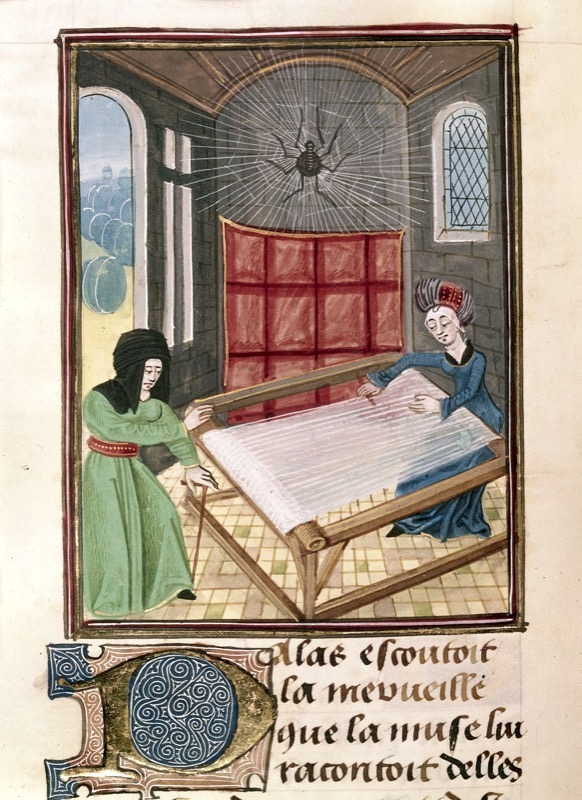 Palas escoutoit
la merueille
que la muse lui
racontoit delles